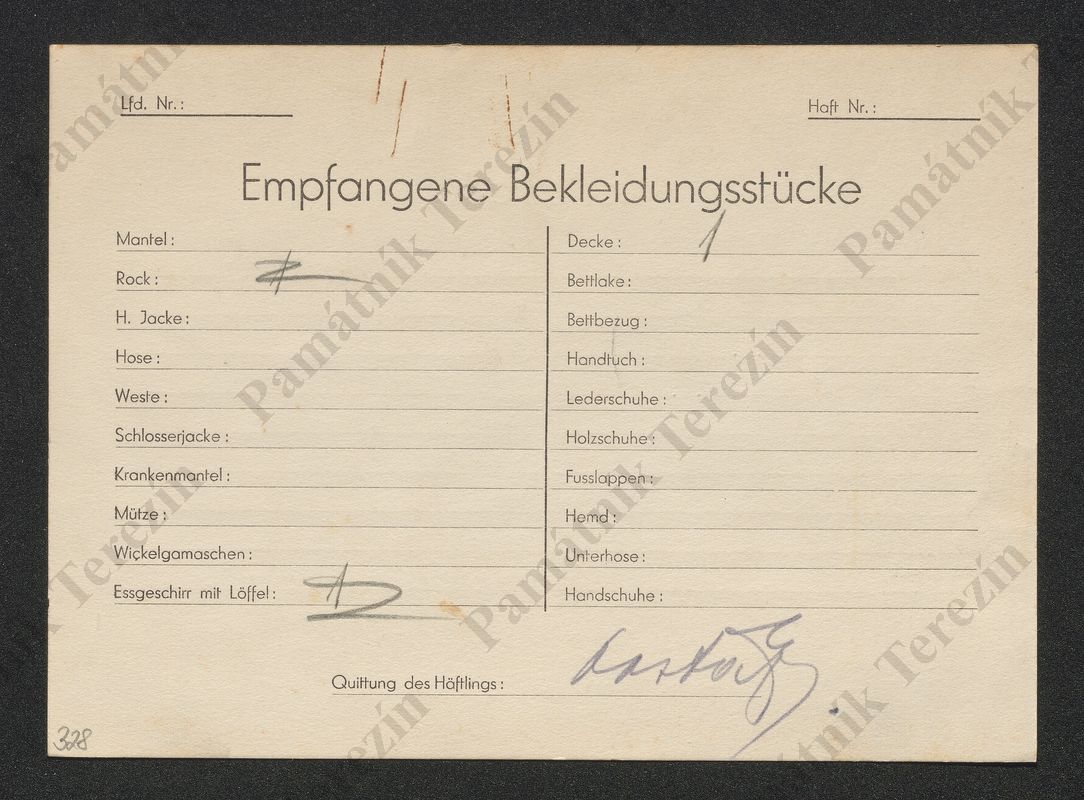 Lfd. Nr.:
Haft Nr.:
Empfangene Bekleidungsstücke
Mantel:
Rock:
H. Jacke:
Hose:
Weste:
Schlosserjacke:
Krankenmantel:
Mütze:
Wickelgamaschen:
Essgeschirr mit Löffel: 1
Decke: 1
Bettlake:
Bettbezug:
Handtuch:
Lederschuhe:
Holzschuhe:
Fusslappen:
Hemd:
Unterhose:
Handschuhe:
Quittung des Häftlings:
328
Památník Terezín